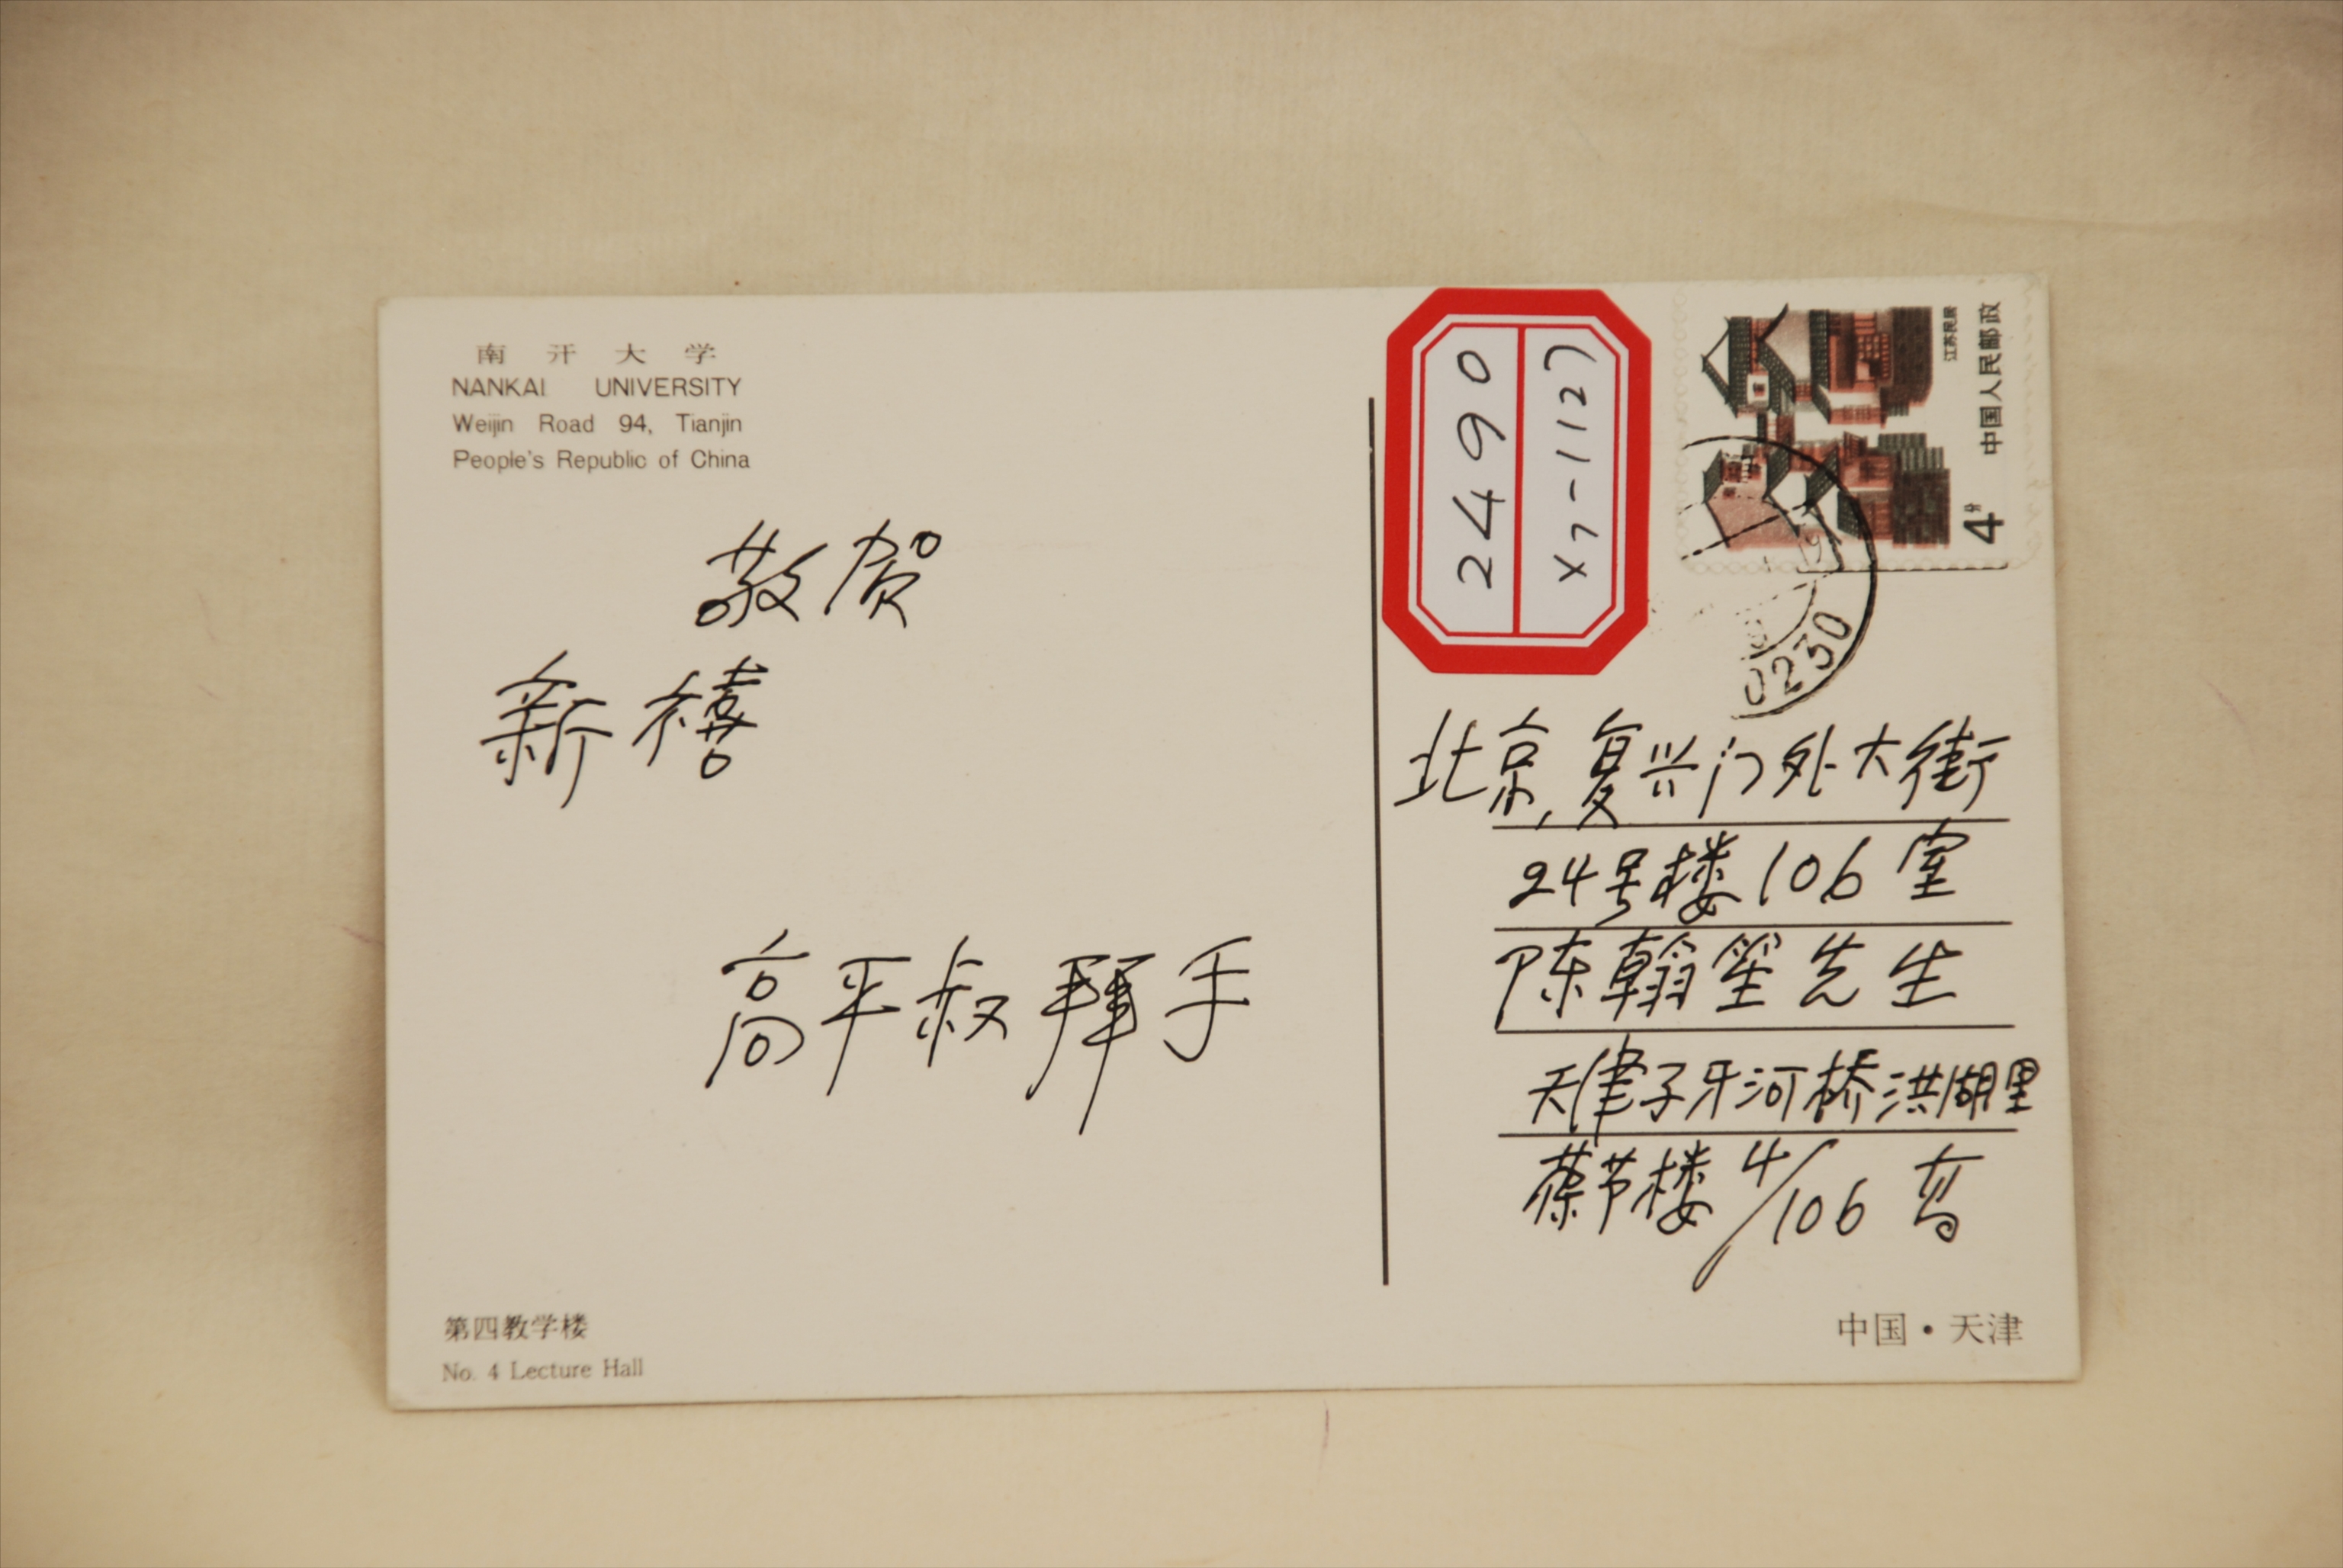 南开大学
NANKAI UNIVERSITY
Weijin Road 94, Tianjin
People's Republic of China
敬贺
新禧
高平叔拜手
第四教学楼
No. 4 Lecture Hall
2490
X7-1127
中国人民邮政
江苏民居
4分
0230
北京,复兴门外大街
24号楼106室
陈翰笙先生
天津子牙河桥洪湖里
葆芳楼4/106高
中国·天津